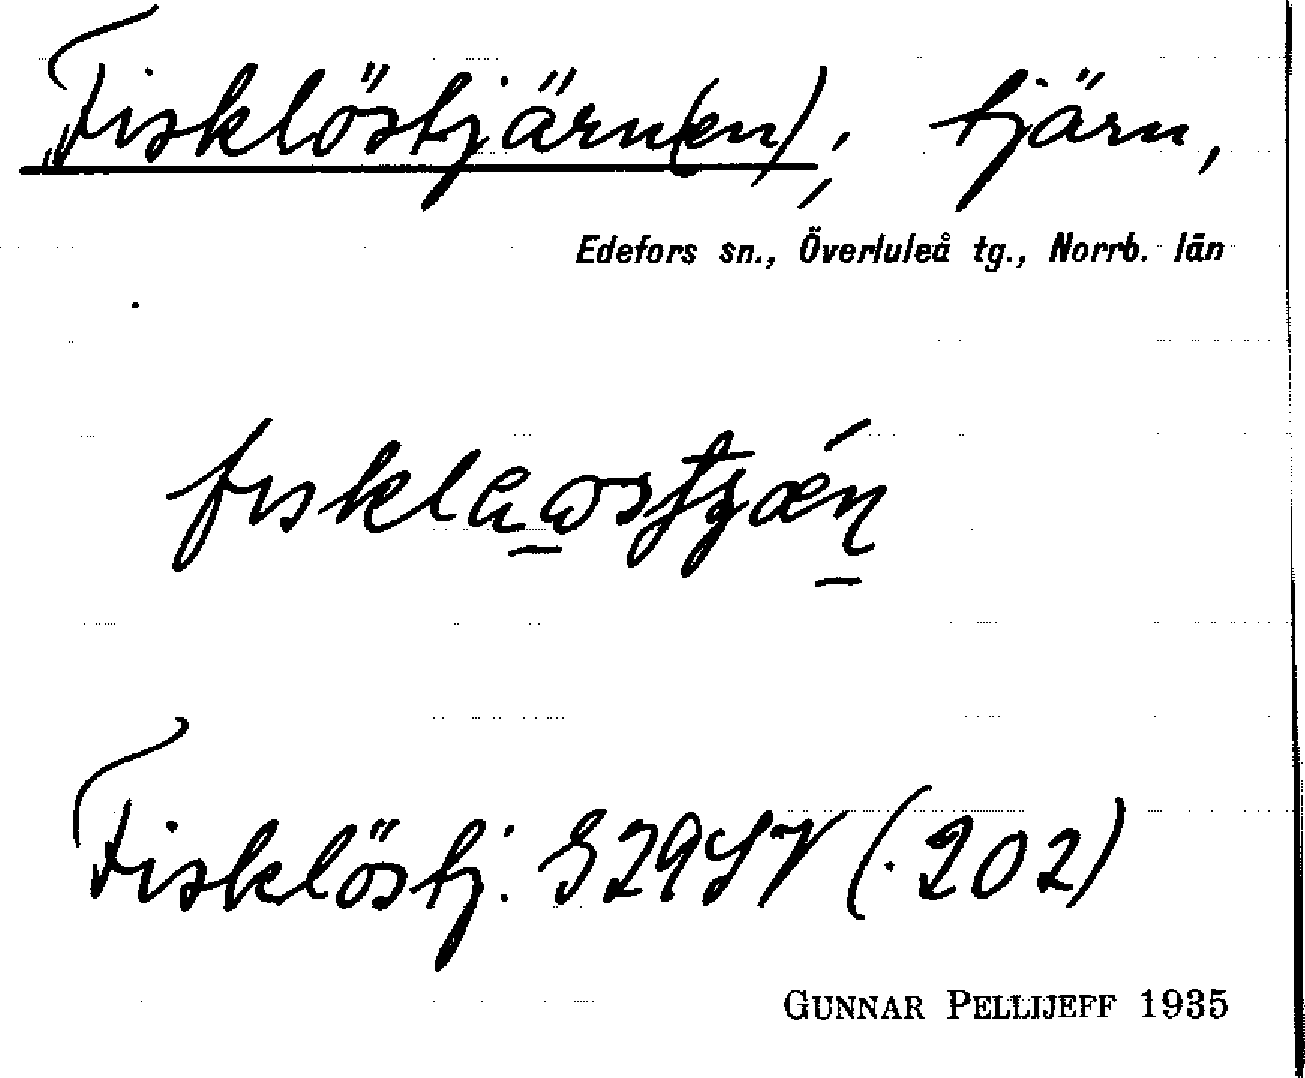 Fisklöstjärn(en), tjärn,
Edefors sn., Överluleå tg., Norrb. län
Fisklöstj. S29SV (202)
GUNNAR PELLIJEFF 1935